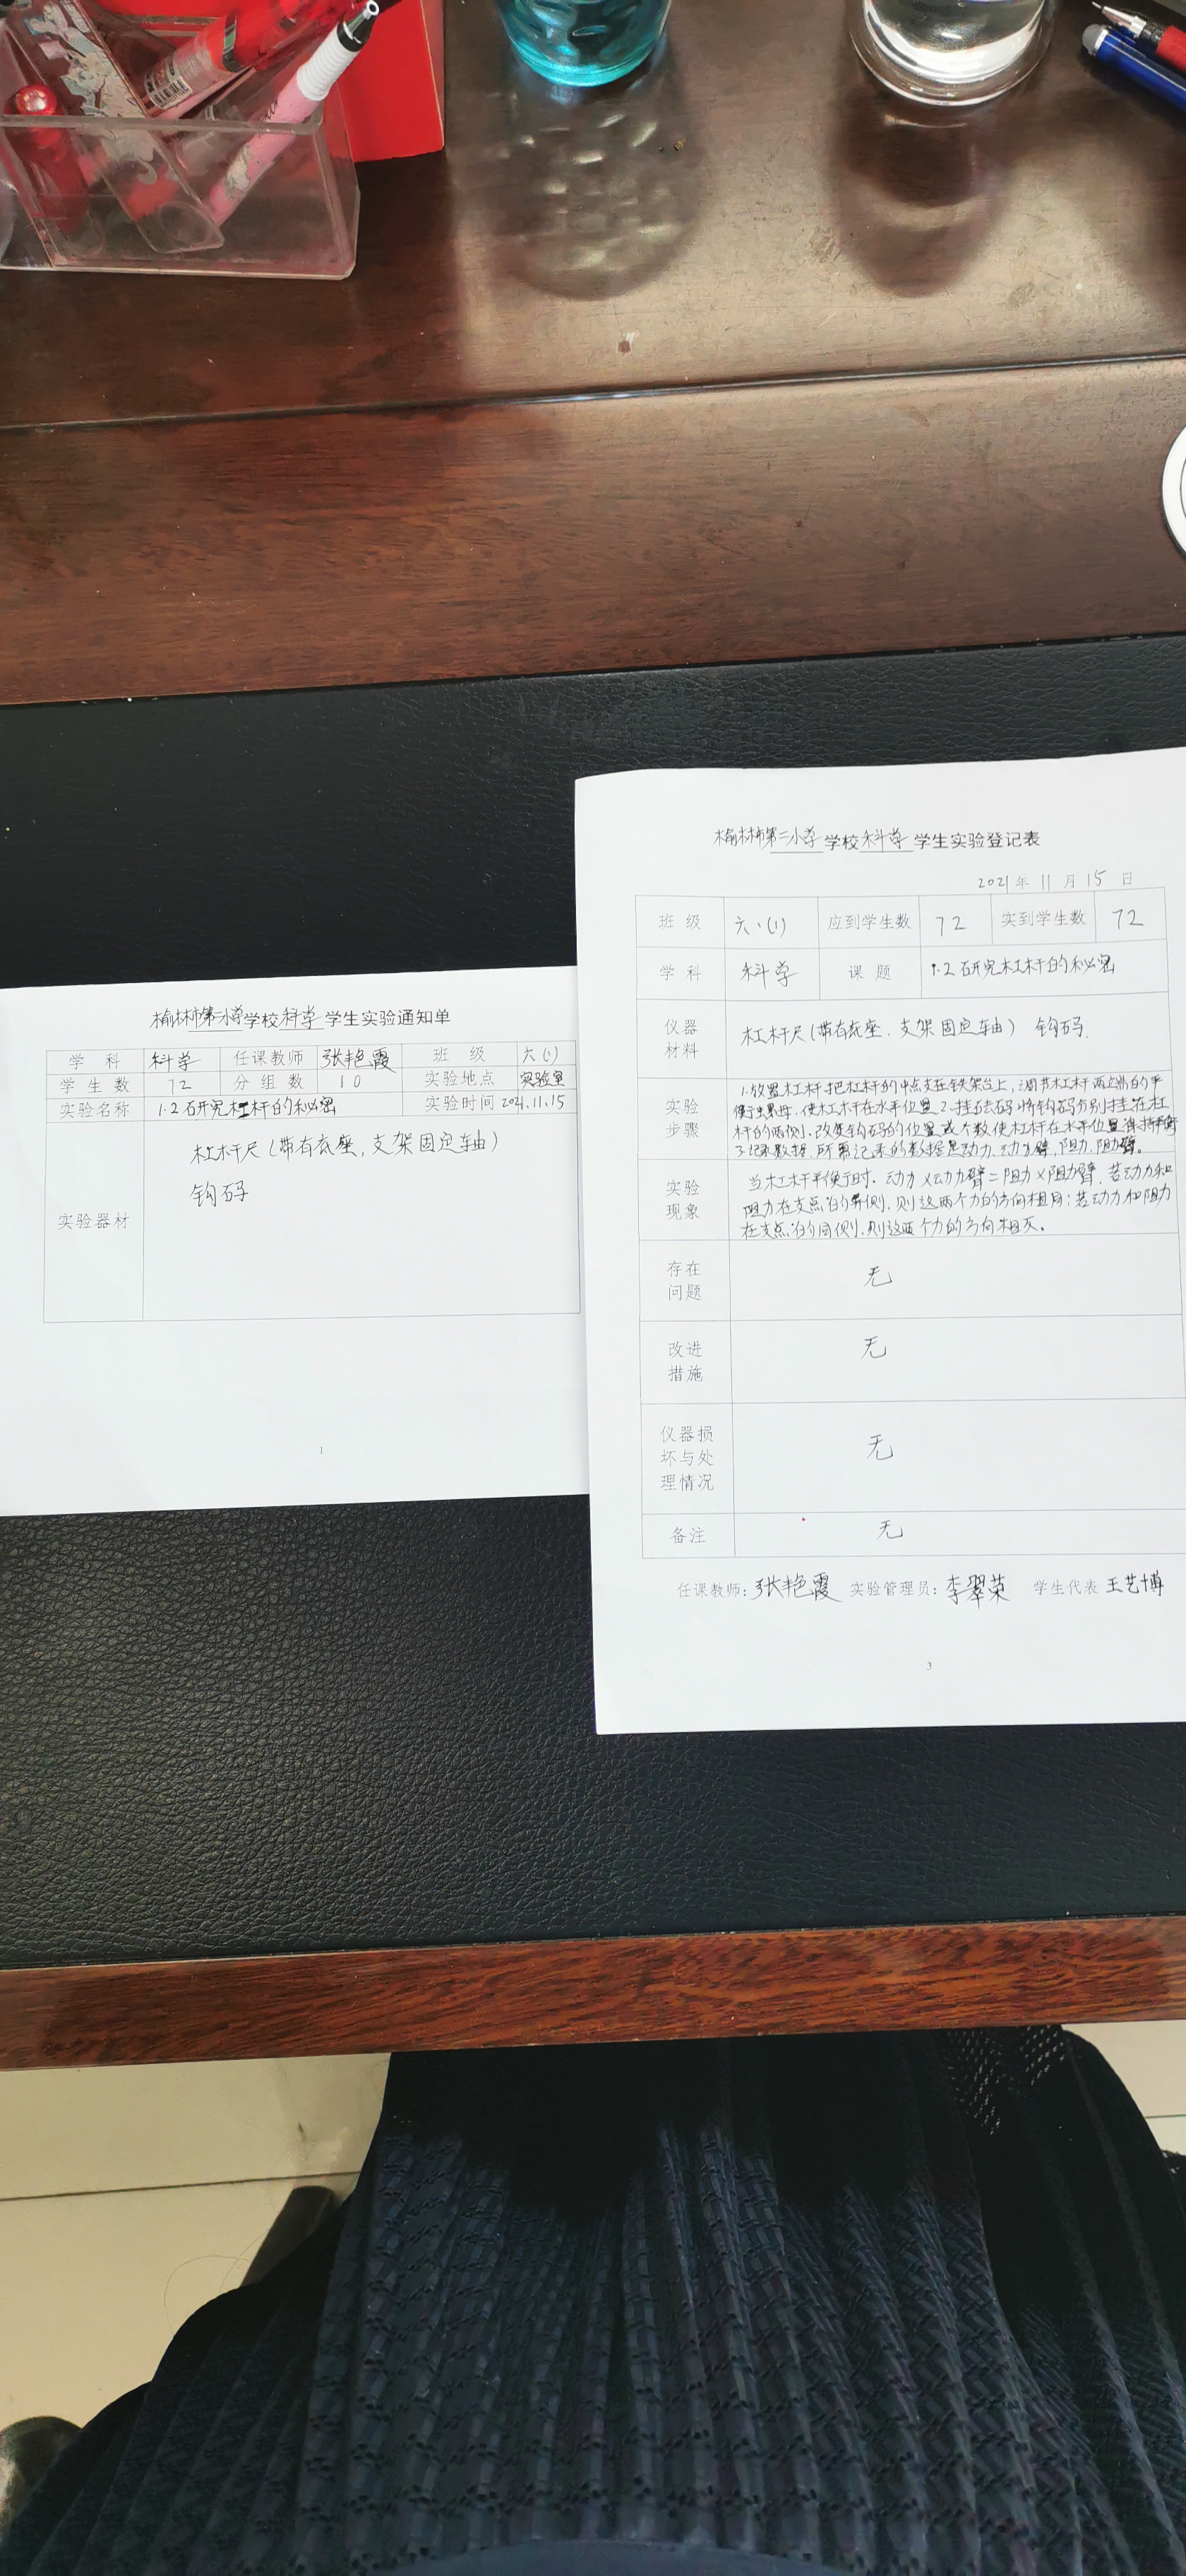 榆林市第二小学学校科学学生实验通知单
学科 科学 任课教师 张艳霞 班级 六(1)
学生数 72 分组数 10 实验地点 实验室
实验名称 1.2研究杠杆的秘密 实验时间 2021.11.15
实验器材
杠杆尺(带有底座,支架固定轴)
钩码
1
榆林市第二小学学校科学学生实验登记表
2021年11月15日
班级 六.(1) 应到学生数 72 实到学生数 72
学科 科学 课题 1.2研究杠杆的秘密
仪器材料 杠杆尺(带有底座.支架固定轴) 钩码.
实验步骤
1.放置杠杆:把杠杆的中点支在铁架台上,调节杠杆两端的平
衡螺母,使杠杆在水平位置 2.挂砝码:将钩码分别挂在杠
杆的两侧.改变钩码的位置或个数使杠杆在水平位置保持平衡
3.记录数据,所需记录的数据是动力、动力臂,阻力.阻力臂。
实验现象
当杠杆平衡时.动力×动力臂=阻力×阻力臂,若动力和
阻力在支点的异侧.则这两个力的方向相同;若动力和阻力
在支点的同侧.则这两个力的方向相反。
存在问题 无
改进措施 无
仪器损坏与处理情况 无
备注 无
任课教师:张艳霞 实验管理员:李翠荣 学生代表 王艺博
3